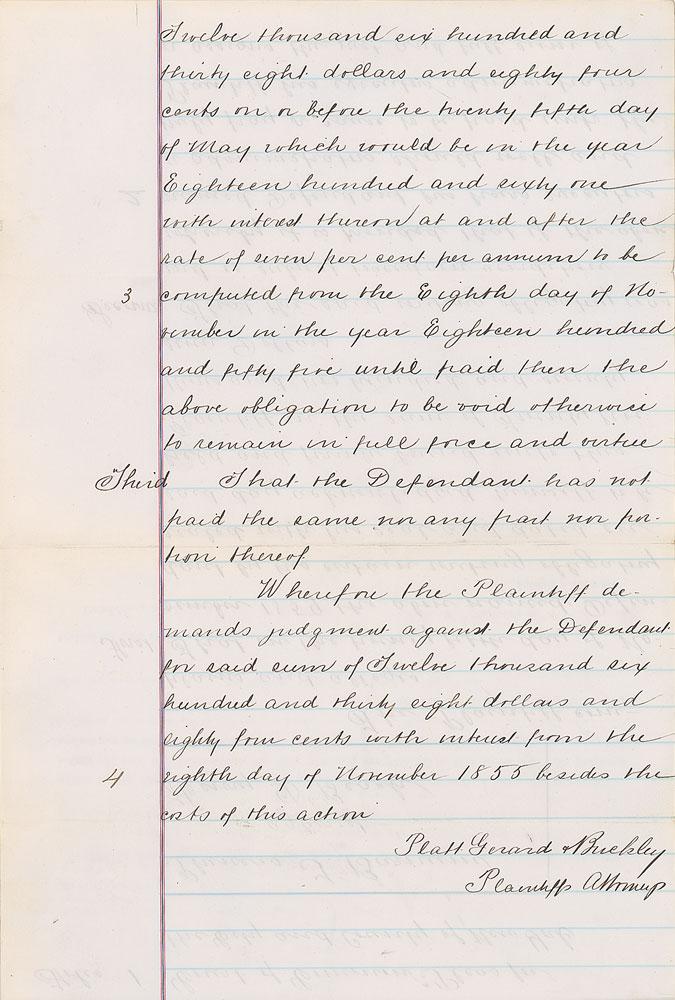 Twelve thousand six hundred and
thirty eight dollars and eighty four
cents on or before the twenty fifth day
of May which would be in the year
Eighteen hundred and sixty one
with interest thereon at and after the
rate of seven per cent per annum to be
3 computed from the Eighth day of No-
vember in the year Eighteen hundred
and fifty five until paid then the
above obligation to be void otherwise
to remain in full force and virtue
Third That the Defendant has not
paid the same nor any part nor por-
tion thereof
Wherefore the Plaintiff de-
mands judgment against the Defendant
for said sum of Twelve thousand six
hundred and thirty eight dollars and
eighty four cents with interest from the
4 eighth day of November 1855 besides the
costs of this action
Platt Gerard & Buckley
Plaintiffs Attorneys